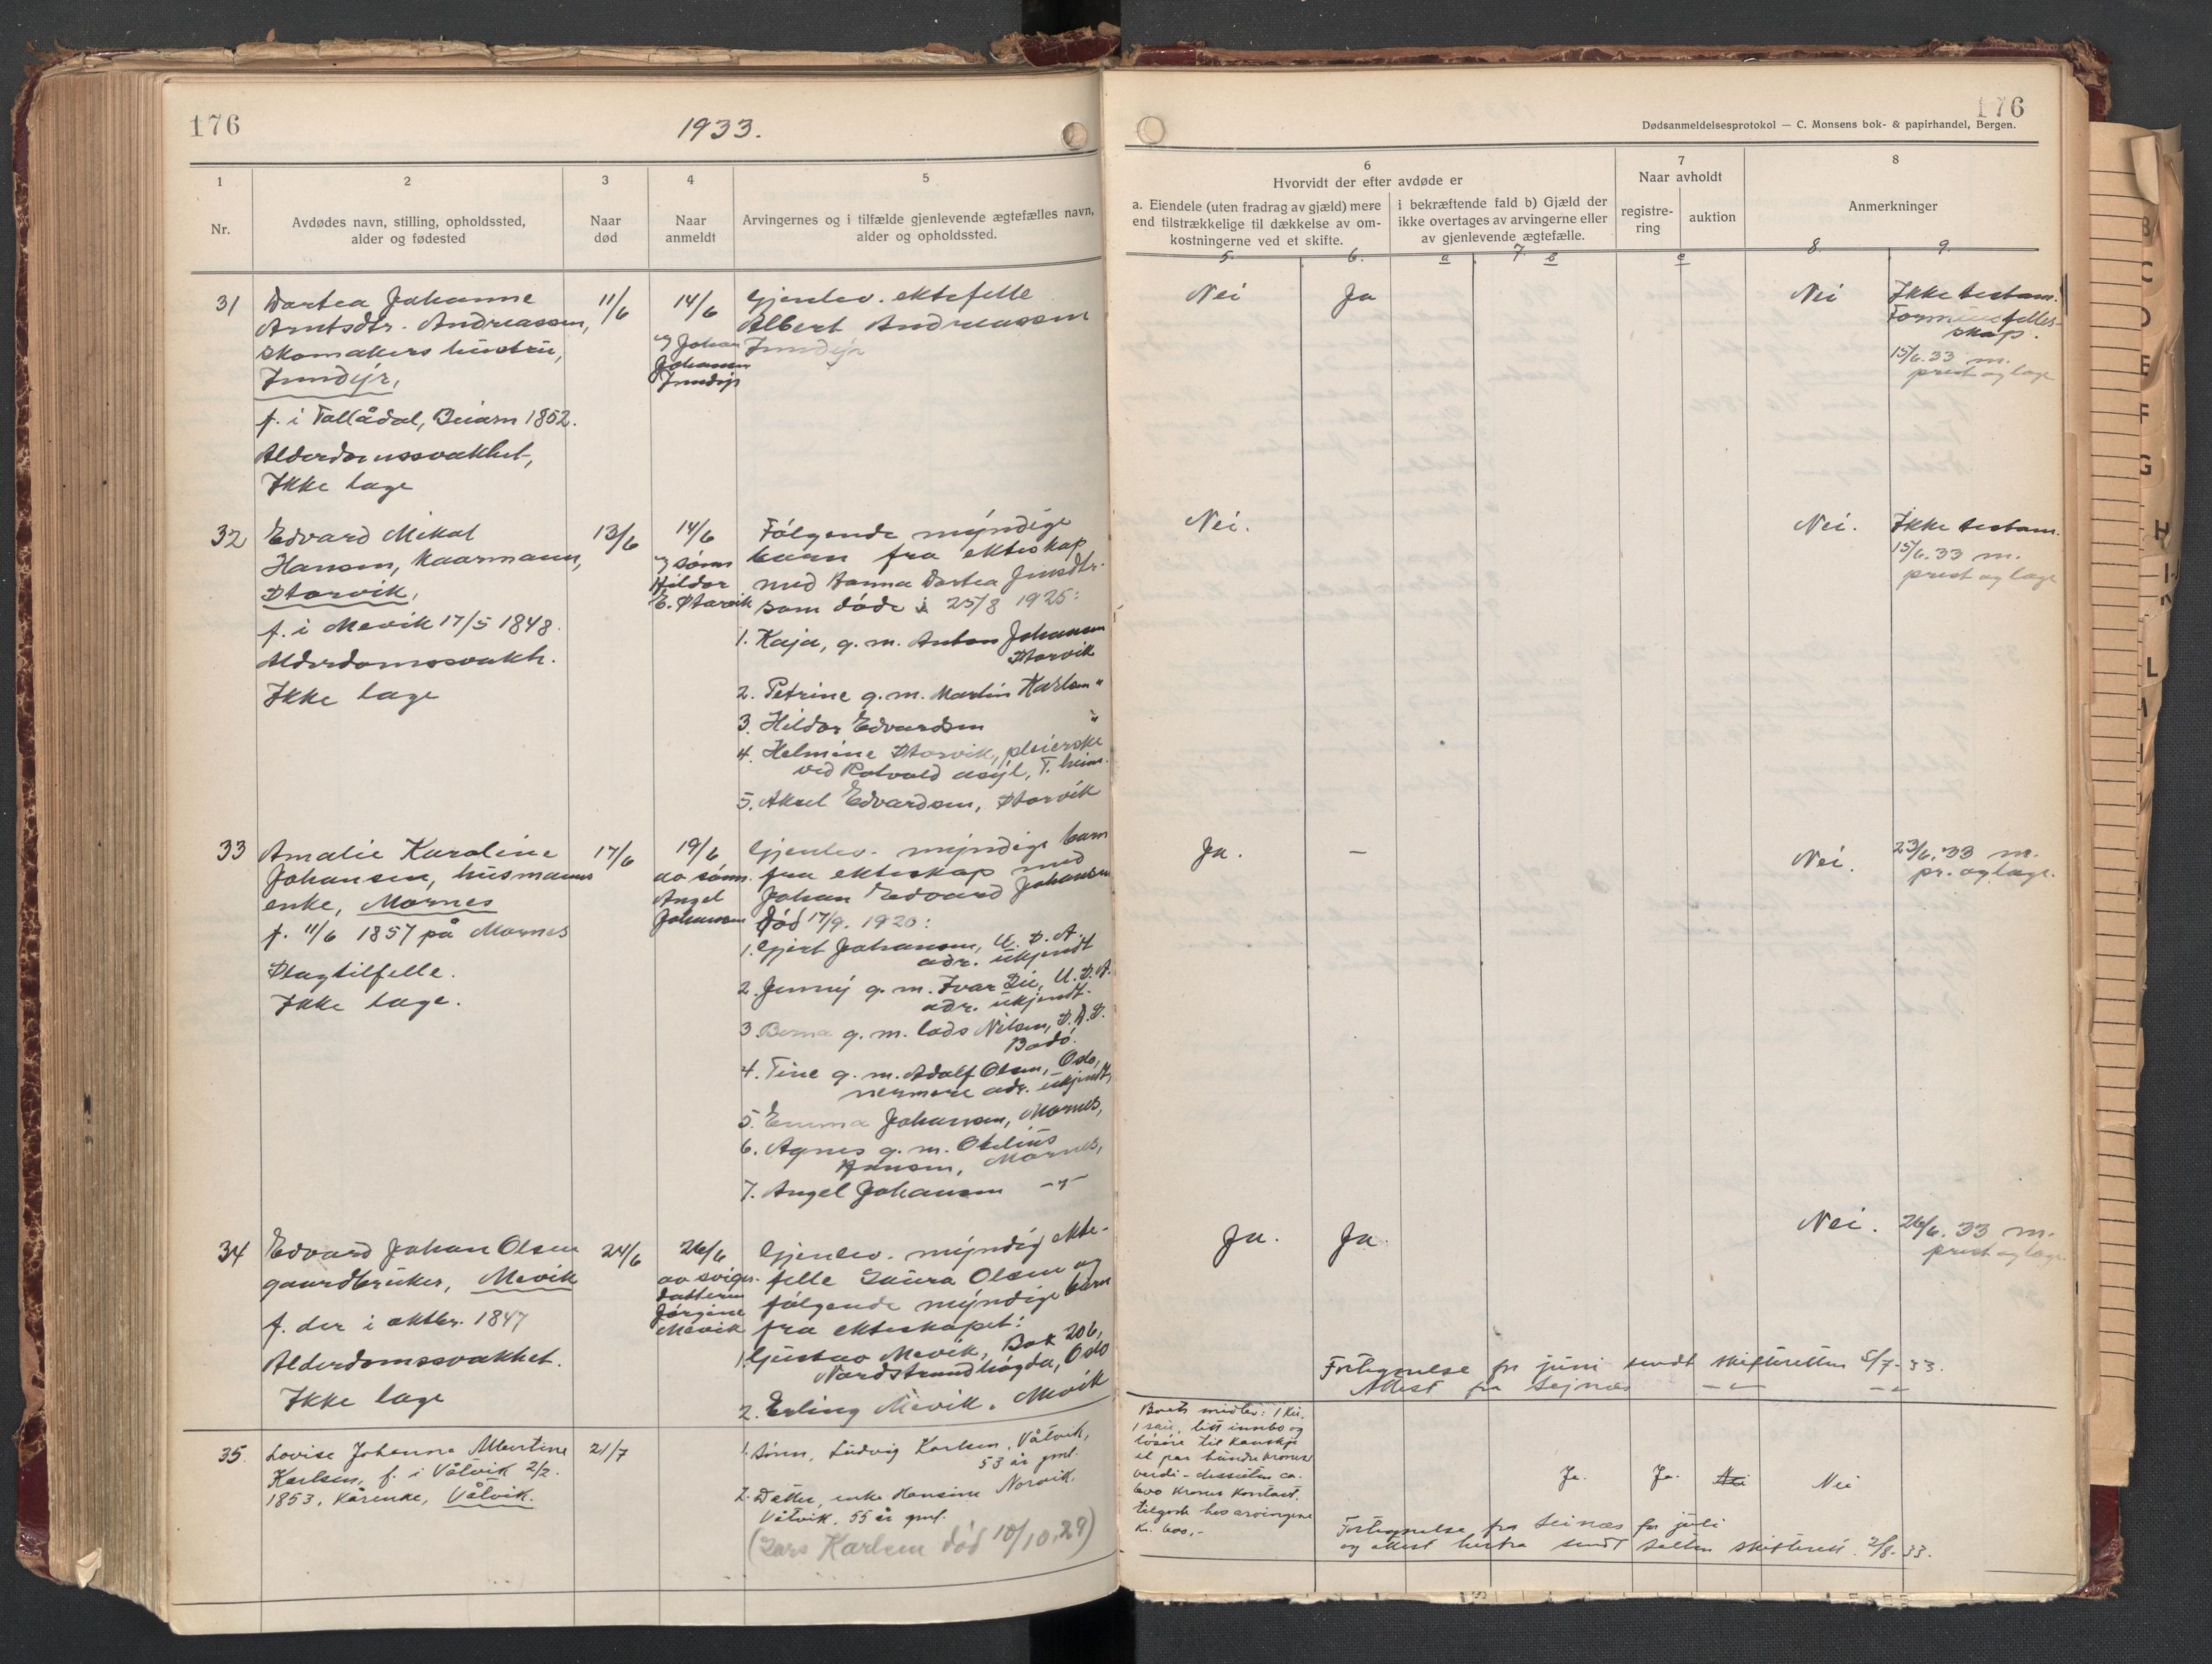 176
1933.
1
2
3
4
5
Nr.
Avdødes navn, stilling, opholdssted,
alder og fødested
Naar
død
Naar
anmeldt
Arvingernes og i tilfælde gjenlevende ægtefælles navn,
alder og opholdssted.
31
Dortea Johanne
Arntsdtr. Andreassen,
skomakers hustru,
Inndyr,
f. i Tollådal, Beiarn 1852.
Alderdomssvakhet,
Ikke læge
11/6
14/6
Johan
Johansen
Inndyr
Gjenlev. ektefelle
Albert Andreassen
Inndyr
32
Edvard Mikal
Hansen, kaarmann,
Storvik,
f. i Mevik 17/5 1848.
Alderdomssvakh.
Ikke læge
13/6
14/6
sønn
Hildor
E. Storvik
Følgende myndige
barn fra ekteskap
med Hanna Dortea Jensdtr.
som døde 25/8 1925:
1. Kaja, g. m. Anton Johansen
Storvik
2. Petrine g. m. Martin Karlsen "
3. Hildor Edvardsen "
4. Helmine Storvik, pleierske
ved Rotvold asyl, T.heim.
5. Aksel Edvardsen, Storvik
33
Amalie Karoline
Johansen, husmanns
enke, Mornes
f. 11/6 1857 på Mornes
Slagtilfelle.
Ikke læge.
17/6
19/6
av sønn
Angel
Johansen
Gjenlev. myndige barn
fra ekteskap med
Johan Edvard Johansen
død 17/9. 1920:
1. Gjert Johansen, U. S. A.
adr. ukjendt
2. Jenny g. m. Ivar Lie, U. S. A.
adr. ukjendt.
3. Berna g. m. lods Nilsen, D.D.S.
Bodø.
4. Tine g. m. Adolf Olsen, Oslo,
nermere adr. ukjendt,
5. Emma Johansen, Mornes,
6. Agnes g. m. Otelius
Hansen, Mornes,
7. Angel Johansen —"—
34
Edvard Johan Olsen
gaardbruker, Mevik
f. der i oktbr. 1847
Alderdomssvakhet.
Ikke læge
24/6
26/6
av sviger-
datteren
Jørgine
Mevik
Gjenlev. myndig ekte-
felle Laura Olsen og
følgende myndige barn
fra ekteskapet:
1. Gustav Mevik, Box 206,
Nordstrandhøgda, Oslo
2. Erling Mevik. Mevik
35.
Lovise Johanna Albertine
Karlsen, f. i Våtvik 2/2.
1853, kårenke, Våtvik.
21/7
1. Sønn, Ludvig Karlsen, Våtvik,
53 år gml.
2. Datter, enke Hansine Norvik,
Våtvik, 55 år gml.
(Lars Karlsen død 10/10.29)
176
Dødsanmeldelsesprotokol — C. Monsens bok- & papirhandel, Bergen.
6
Hvorvidt der efter avdøde er
a. Eiendele (uten fradrag av gjæld) mere
end tilstrækkelige til dækkelse av om-
kostningerne ved et skifte.
i bekræftende fald b) Gjæld der
ikke overtages av arvingerne eller
av gjenlevende ægtefælle.
7
Naar avholdt
registre-
ring
auktion
8
Anmerkninger
5. 6. a 7. b c 8. 9.
Nei Ja Nei Ikke testam.
Formuefelles-
skap.
15/6.33 m.
prest og læge
Nei. Nei. Ikke testam.
15/6.33 m.
prest og læge
Ja. — Nei. 23/6.33 m.
pr. og læge.
Ja. Ja. Nei. 26/6.33 m.
prest og læge
Fortegnelse for juni sendt skifteretten 5/7-33.
Attest fra
Boets midler: 1 ku,
1 sau, litt innbo og
løsøre til kanskje
et par hundre kroner
verdi - dessuten ca.
600 kroner kontant.
tilgode hos arvingene
Kr. 600,-
Ja. Ja. Nei Nei
Fortegnelse fra for juli
og attest herfra sendt Salten skifterett. 2/8-33.